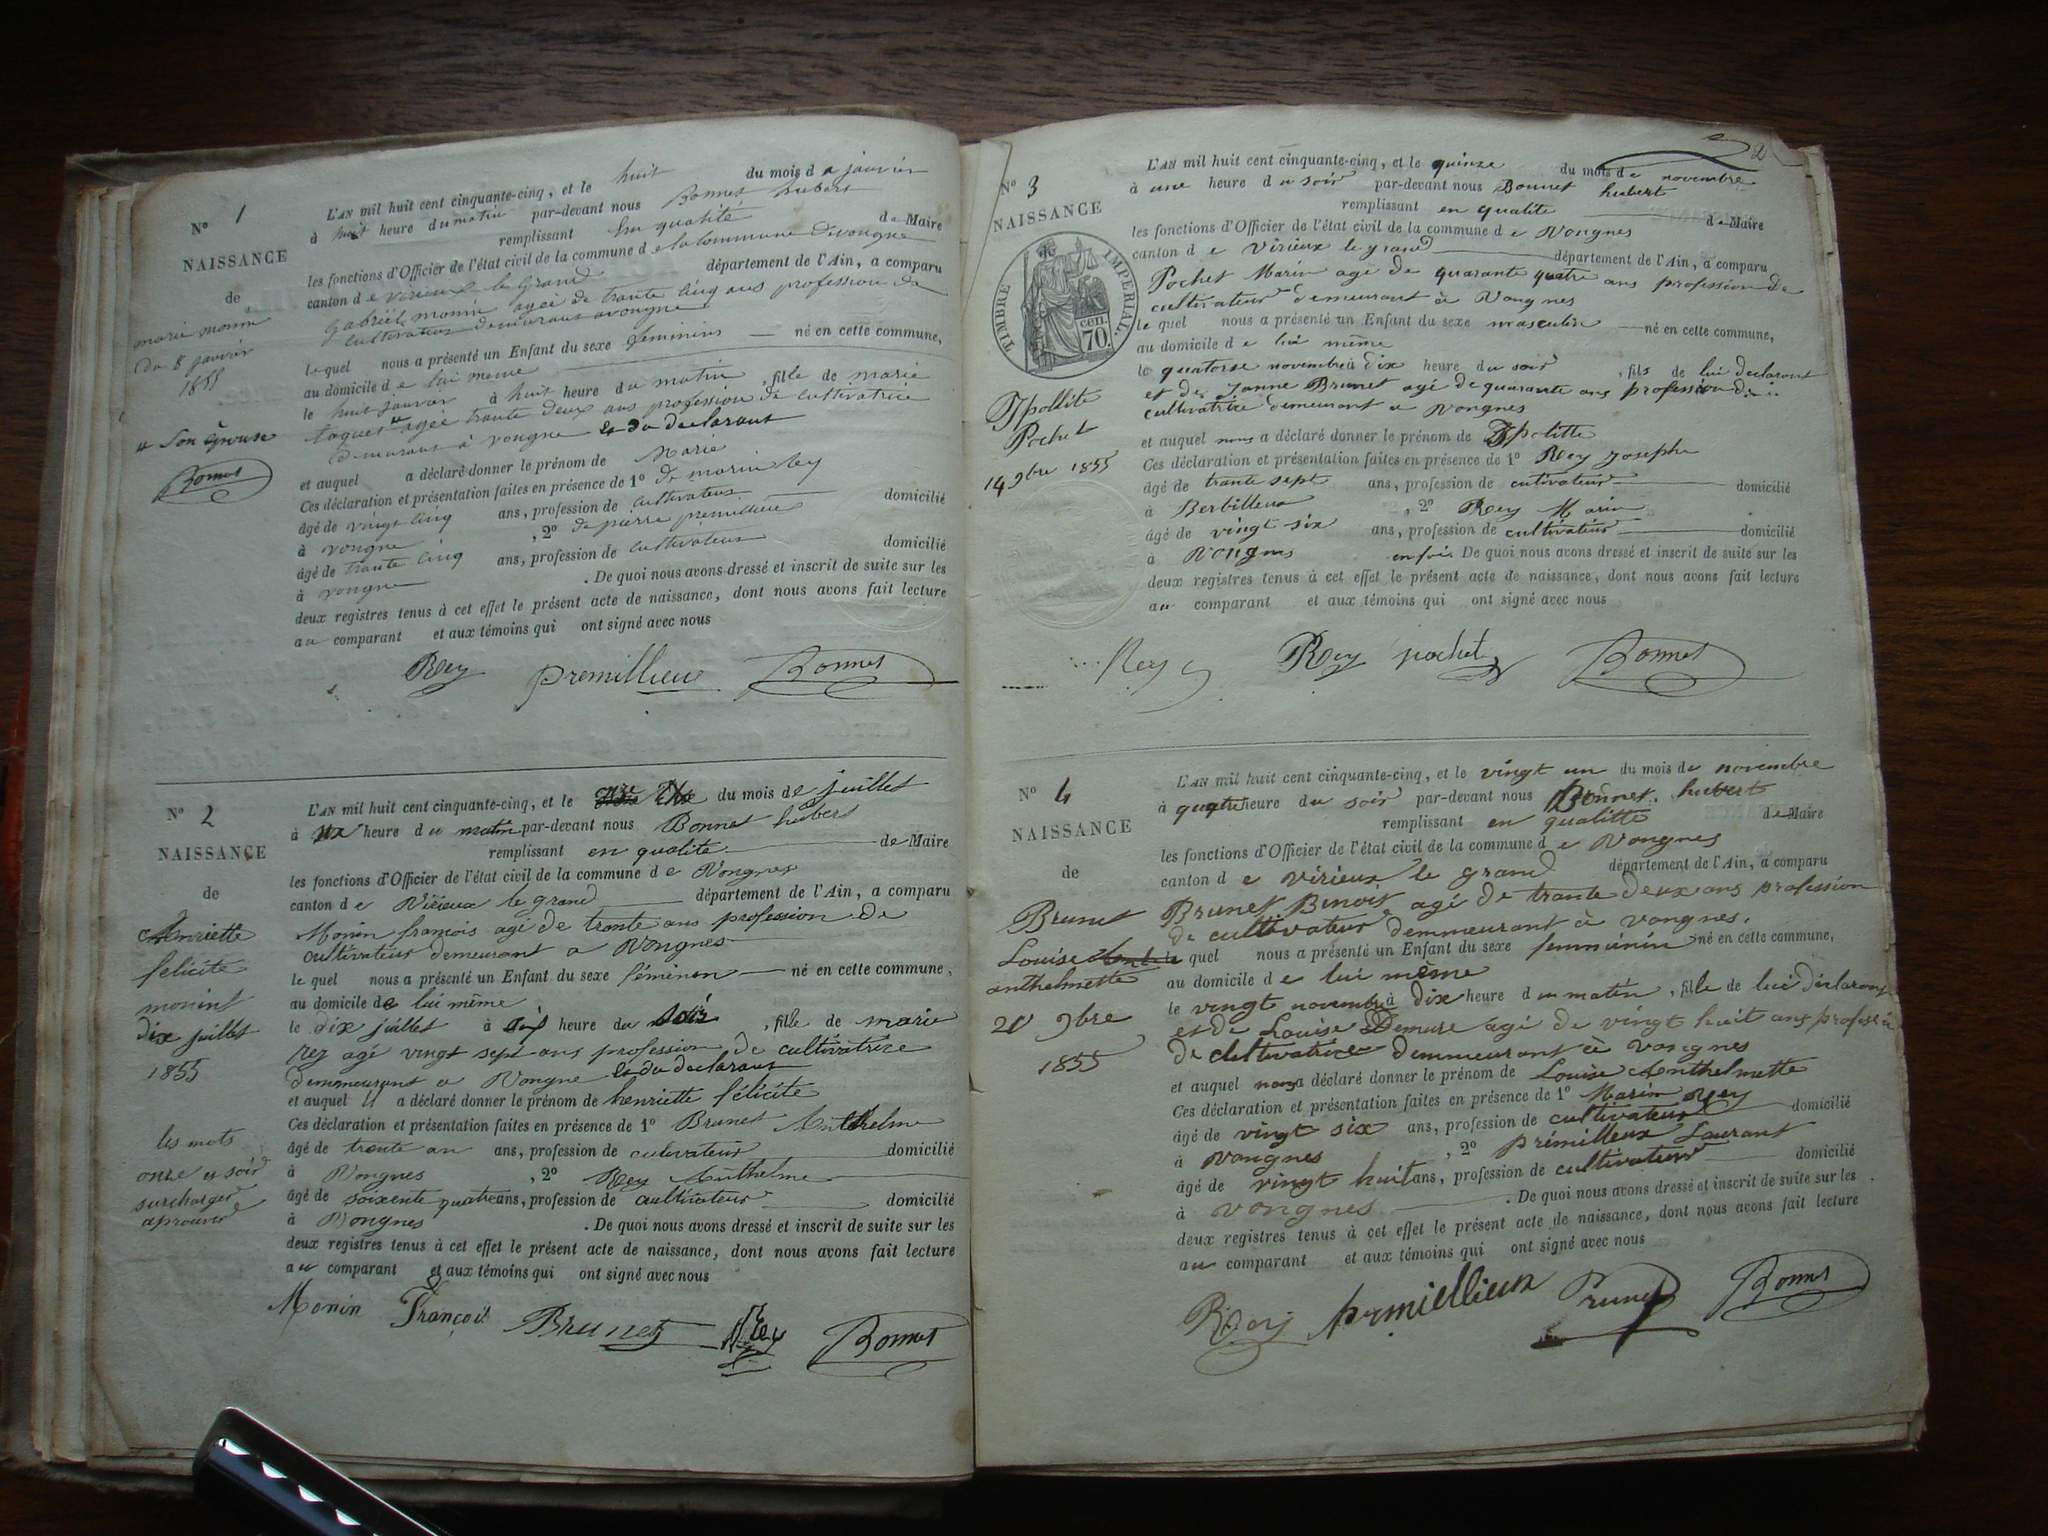 N° 1
NAISSANCE
de
marie monin
du 8 janvier
1855
son épouse
Bonnet
L'AN mil huit cent cinquante-cinq, et le huit du mois de janvier
à huit heure du matin par-devant nous Bonnet hubert
remplissant En qualité de Maire
les fonctions d'Officier de l'état civil de la commune de la commune de vongne
canton de virieux le Grand département de l'Ain, a comparu
gabriel monin agé de trante cinq ans profession de
cultivateur demeurant a vongne
le quel nous a présenté un Enfant du sexe feminin né en cette commune,
au domicile de lui meme
le huit janvier à huit heure du matin, fille de marie
agée trante deux ans profession de cultivatrice
demurant à vongne et du declarant
et auquel a déclaré donner le prénom de Marie
Ces déclaration et présentation faites en présence de 1° de marin Rey
âgé de vingt cinq ans, profession de cultivateur domicilié
à vongne, 2° de pierre premillieu
âgé de trante cinq ans, profession de cultivateur domicilié
à vongne. De quoi nous avons dressé et inscrit de suite sur les
deux registres tenus à cet effet le présent acte de naissance, dont nous avons fait lecture
au comparant et aux témoins qui ont signé avec nous
Rey premillieu Bonnet
N° 2
NAISSANCE
de
henriette
felicite
monint
dix juillet
1855
les mots
onze et soir
surchargés
aprouvé
L'AN mil huit cent cinquante-cinq, et le onze du mois de juillet
à heure du matin par-devant nous Bonnet hubert
remplissant en qualité de Maire
les fonctions d'Officier de l'état civil de la commune de Vongnes
canton de Virieux le grand département de l'Ain, a comparu
Monin francois agé de trante ans profession de
cultivateur demeurant a Vongnes
le quel nous a présenté un Enfant du sexe féminen né en cette commune,
au domicile de lui même
le dix juillet à heure du soir, fille de marie
rey agé vingt sept ans profession de cultivatrice
demmeurant a Vongne et du declarant
et auquel il a déclaré donner le prénom de henriette félicite
Ces déclaration et présentation faites en présence de 1° Brunet Anthelme
âgé de trante un ans, profession de cutivateur domicilié
à Vongnes, 2° Rey Anthelme
âgé de soixente quatre ans, profession de cultivateur domicilié
à Vongnes. De quoi nous avons dressé et inscrit de suite sur les
deux registres tenus à cet effet le présent acte de naissance, dont nous avons fait lecture
au comparant et aux témoins qui ont signé avec nous
Monin François Brunet Rey Bonnet
2
N° 3
NAISSANCE
TIMBRE IMPERIAL.
70 cen.
Ypollite
Pochet
14 9bre 1855
L'AN mil huit cent cinquante-cinq, et le quinze du mois de novembre
à une heure du soir par-devant nous Bonnet hubert
remplissant en qualite de Maire
les fonctions d'Officier de l'état civil de la commune de Vongnes
canton de virieux le grand département de l'Ain, a comparu
Pochet Marin agé de quarante quatre ans profession de
cultivateur demeurant à Vongnes
le quel nous a présenté un Enfant du sexe masculin né en cette commune,
au domicile de lui même
le quatorse novembre à dix heure du soir, fils de lui declarant
et de Janne Brunet agé de quarante ans profession de
cultivatrice demeurant a Vongnes
et auquel nous a déclaré donner le prénom de Ypolitte
Ces déclaration et présentation faites en présence de 1° Rey Josephe
âgé de trante sept ans, profession de cutivateur domicilié
à Berbilleux, 2° Rey Marin
âgé de vingt six ans, profession de cultivateur domicilié
à Vongnes en foi. De quoi nous avons dressé et inscrit de suite sur les
deux registres tenus à cet effet le présent acte de naissance, dont nous avons fait lecture
au comparant et aux témoins qui ont signé avec nous
Rey Rey pochet Bonnet
N° 4
NAISSANCE
de
Brunet
Louise
anthelmette
20 9bre
1855
L'AN mil huit cent cinquante-cinq, et le vingt un du mois de novembre
à quatre heure du soir par-devant nous Bonnet hubert
remplissant en qualitte de Maire
les fonctions d'Officier de l'état civil de la commune de Vongnes
canton de virieux le grand département de l'Ain, a comparu
Brunet Binoit agé de trante deux ans profession
de cultivateur demmeurant à vongnes.
le quel nous a présenté un Enfant du sexe femminin né en cette commune,
au domicile de lui même
le vingt novembre à dix heure du matin, fille de lui déclarant
et de Louise Demure agé de vingt huit ans profession
de cultivatrice demmeurant à vongnes
et auquel nous a déclaré donner le prénom de Louise Anthelmette
Ces déclaration et présentation faites en présence de 1° Marin Rey
âgé de vingt six ans, profession de cultivateur domicilié
à vongnes, 2° primilleux Laurant
âgé de vingt huit ans, profession de cultivateur domicilié
à vongnes. De quoi nous avons dressé et inscrit de suite sur les
deux registres tenus à cet effet le présent acte de naissance, dont nous avons fait lecture
au comparant et aux témoins qui ont signé avec nous
Rey premiellieux Brunet Bonnet